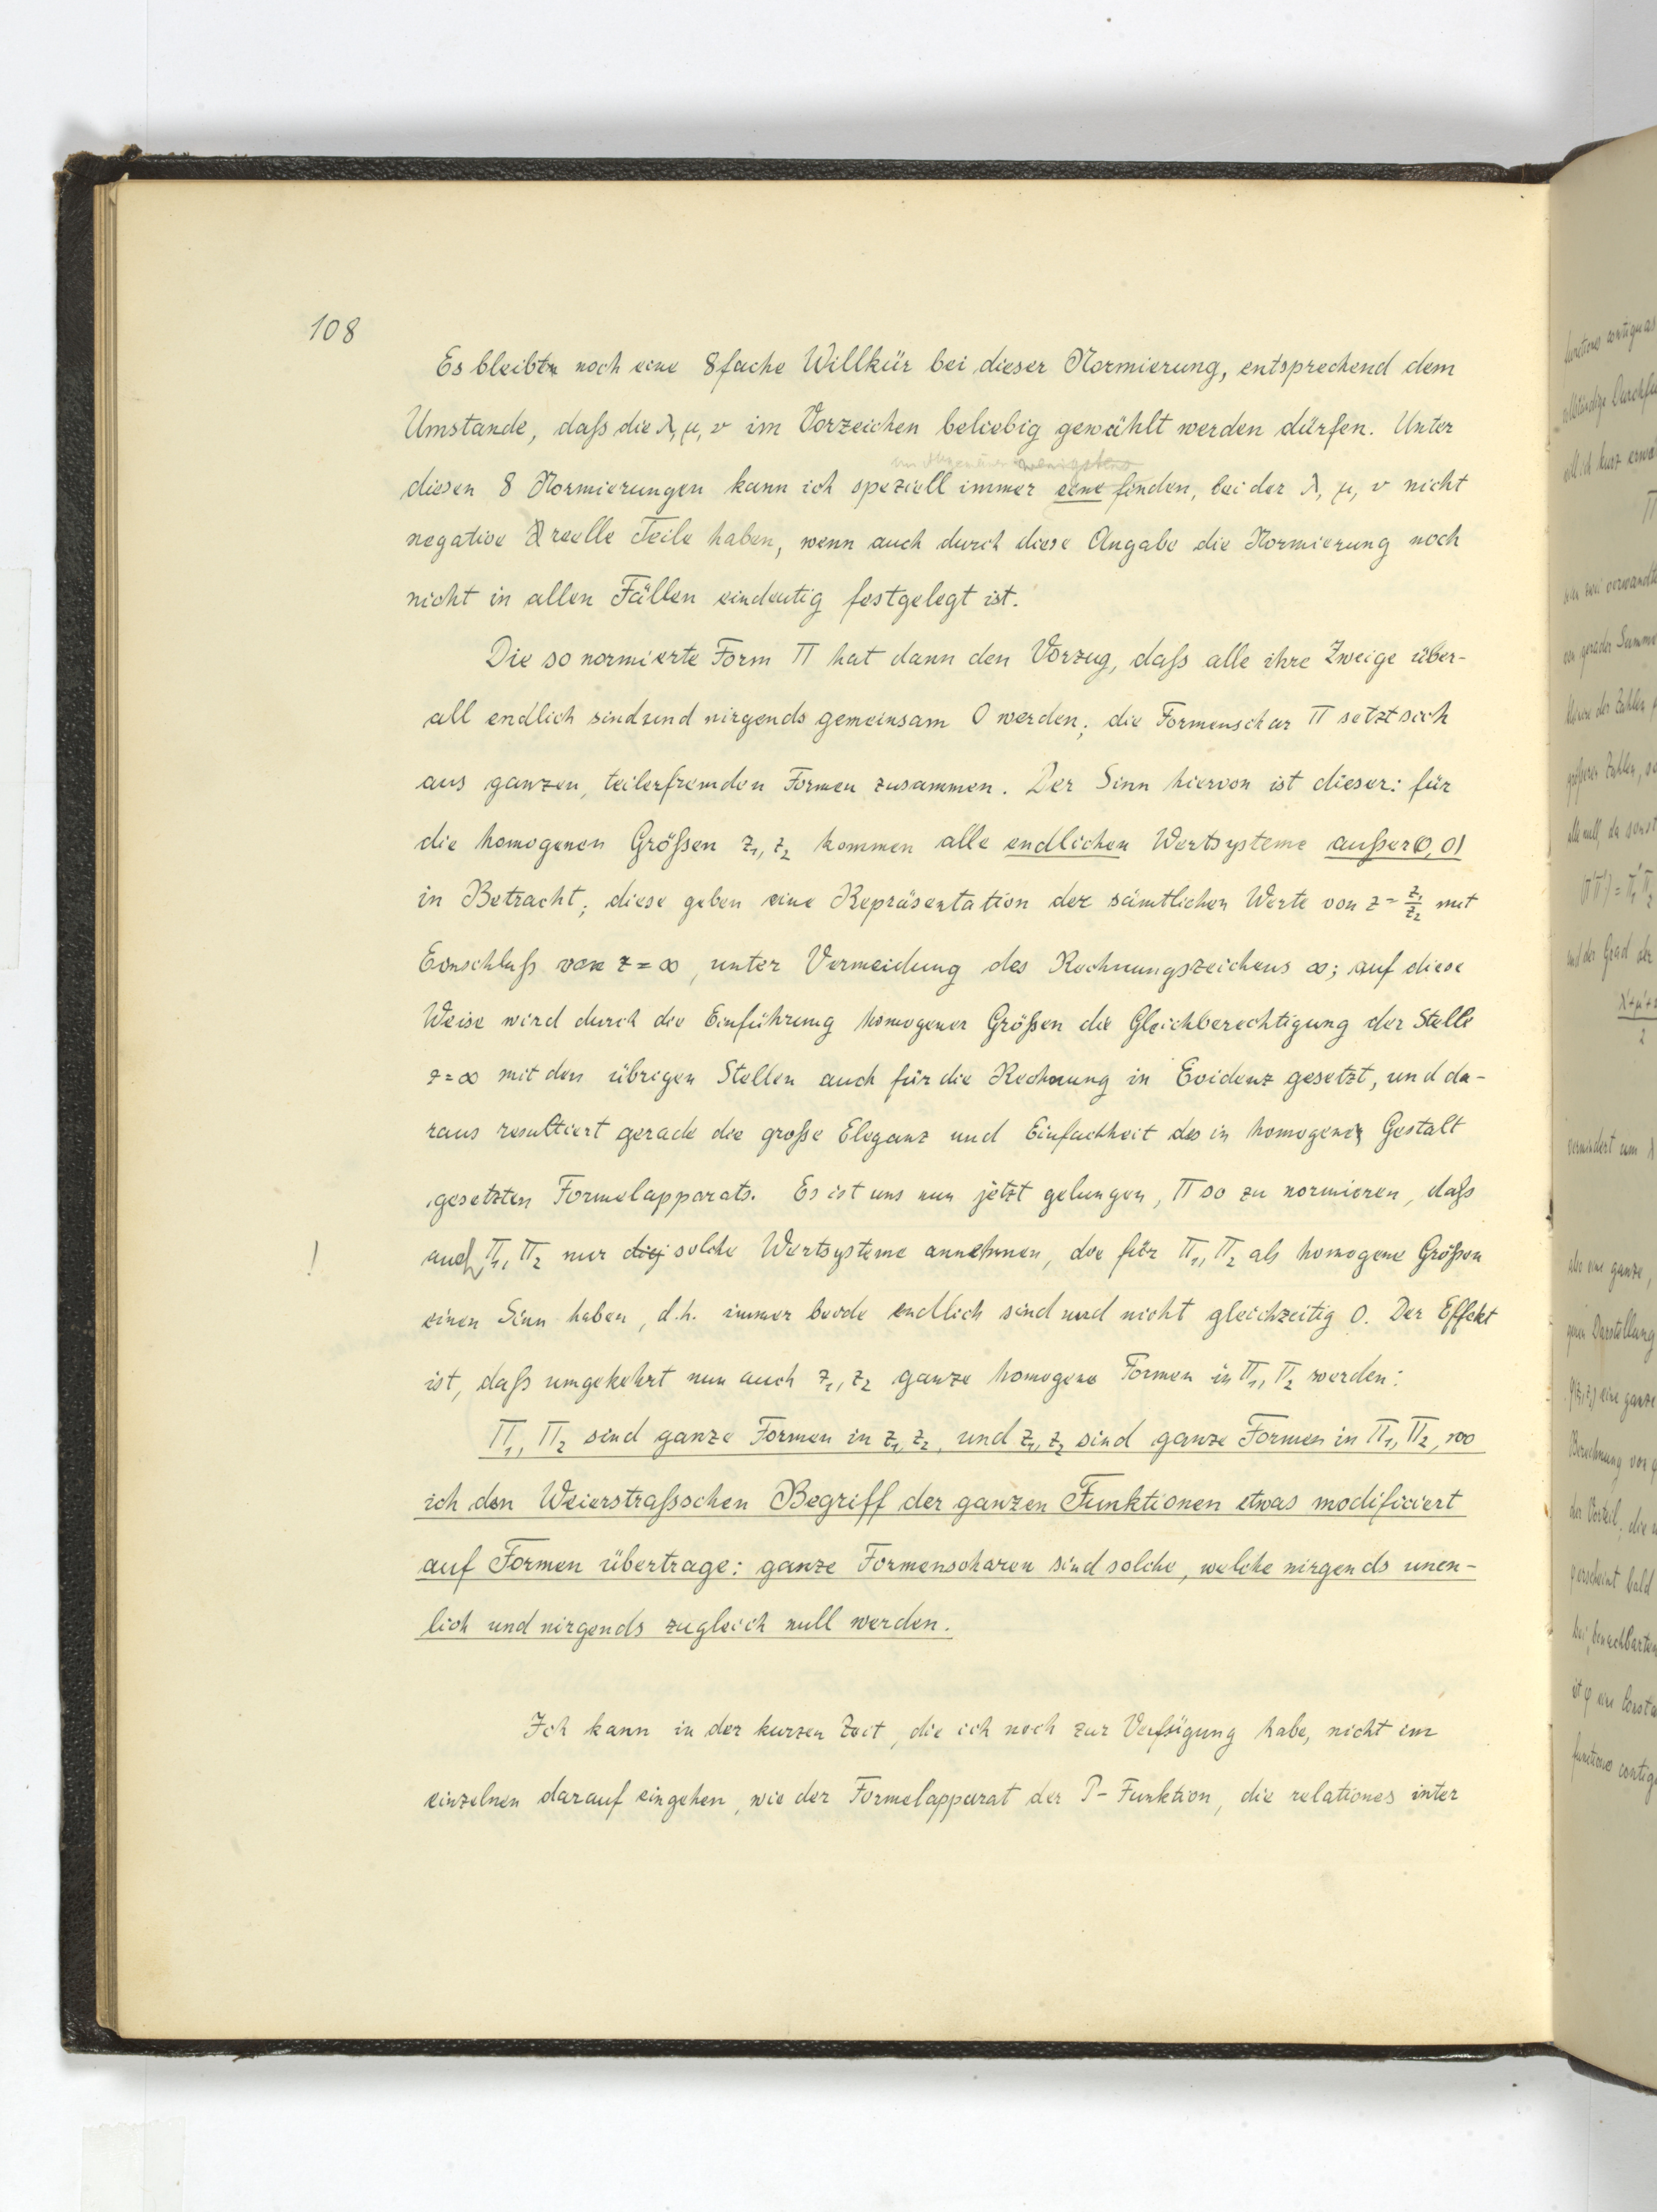 108
Es bleibt noch eine 8fache Willkür bei dieser Normierung, entsprechend dem
Umstande, daß die λ, μ, ν im Vorzeichen beliebig gewählt werden dürfen. Unter
im Allgemeinen wenigstens
diesen 8 Normierungen kann ich speziell immer eine finden, bei der λ, μ, ν nicht
negative reelle Teile haben, wenn auch durch diese Angabe die Normierung noch
nicht in allen Fällen eindeutig festgelegt ist.
Die so normierte Form Π hat dann den Vorzug, daß alle ihre Zweige über-
all endlich sind und nirgends gemeinsam 0 werden; die Formenschar Π setzt sich
aus ganzen, teilerfremden Formen zusammen. Der Sinn hiervon ist dieser: für
die homogenen Größen z₁, z₂ kommen alle endlichen Wertsysteme außer (0, 0)
in Betracht; diese geben eine Repräsentation der sämtlichen Werte von z = z₁/z₂ mit
Einschluß von z = ∞, unter Vermeidung des Rechnungszeichens ∞; auf diese
Weise wird durch die Einführung homogener Größen die Gleichberechtigung der Stelle
z = ∞ mit den übrigen Stellen auch für die Rechnung in Evidenz gesetzt, und da-
raus resultiert gerade die große Eleganz und Einfachheit des in homogener Gestalt
gesetzten Formelapparats. Es ist uns nun jetzt gelungen, Π so zu normieren, daß
! auch Π₁, Π₂ nur solche Wertsysteme annehmen, die für Π₁, Π₂ als homogene Größen
einen Sinn haben, d.h. immer beide endlich sind und nicht gleichzeitig 0. Der Effekt
ist, daß umgekehrt nun auch z₁, z₂ ganze homogene Formen in Π₁, Π₂ werden:
Π₁, Π₂ sind ganze Formen in z₁, z₂, und z₁, z₂ sind ganze Formen in Π₁, Π₂, wo
ich den Weierstraßschen Begriff der ganzen Funktionen etwas modificiert
auf Formen übertrage: ganze Formenscharen sind solche, welche nirgends unen-
lich und nirgends zugleich null werden.
Ich kann in der kurzen Zeit, die ich noch zur Verfügung habe, nicht im
einzelnen darauf eingehen, wie der Formelapparat der P-Funktion, die relationes inter